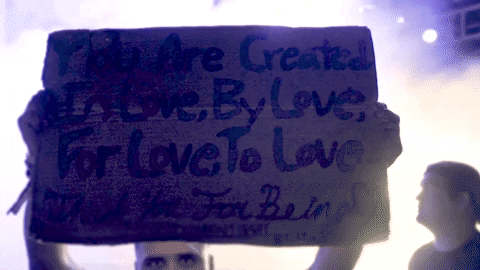 You Are Created
In Love, By Love,
For Love, To Love
Thank You For Being!